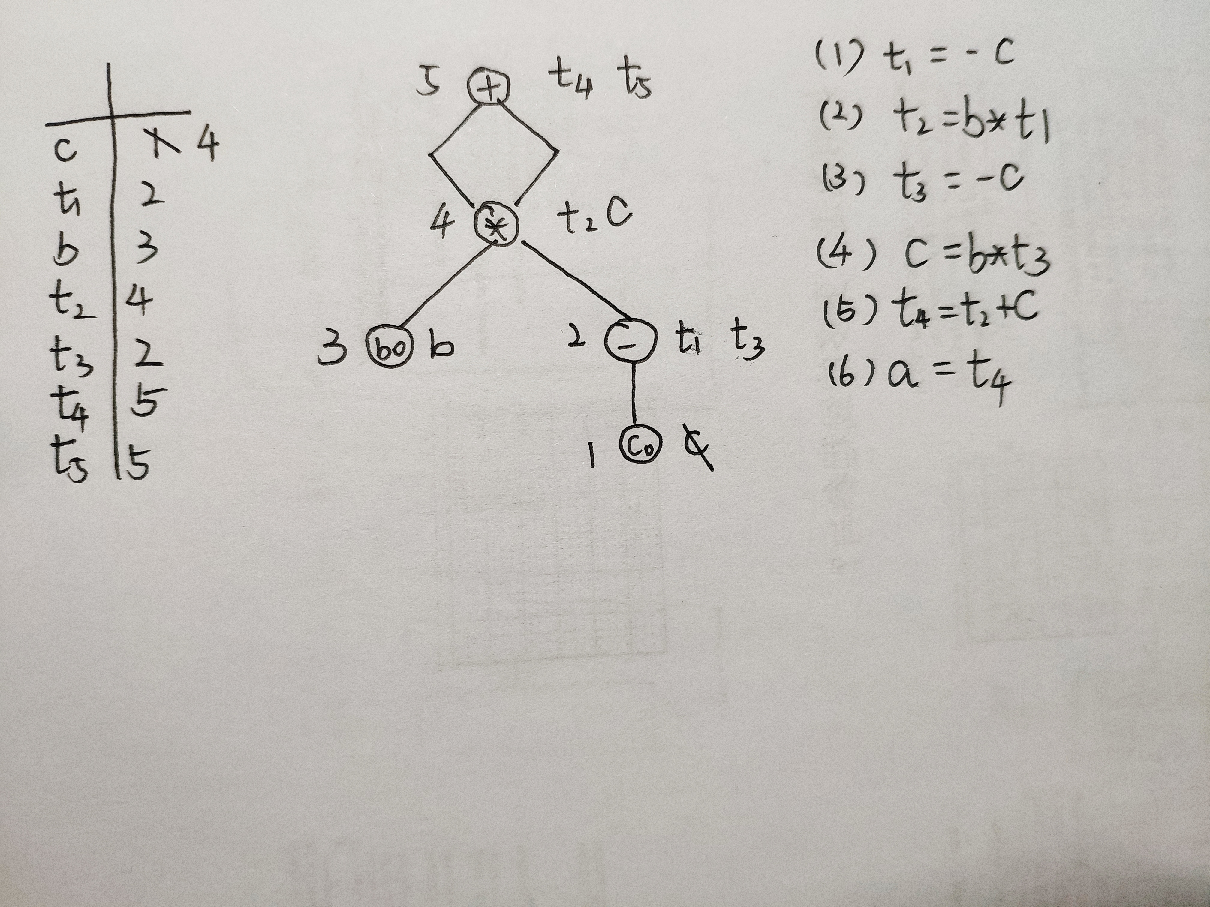 c 1 4
t₁ 2
b 3
t₂ 4
t₃ 2
t₄ 5
t₅ 5
5 + t₄ t₅
4 * t₂ C
3 b₀ b
2 - t₁ t₃
1 C₀ c
(1) t₁ = - C
(2) t₂ = b*t1
(3) t₃ = -C
(4) C = b*t₃
(5) t₄ = t₂+C
(6) a = t₄